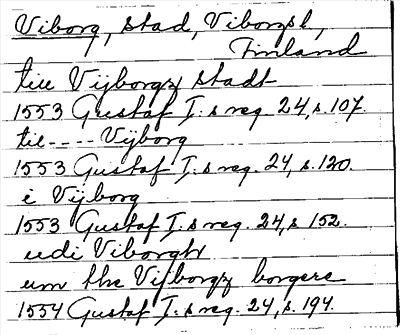 Viborg, stad, Viborgsl,
Finland
till Vijborgz stadt
1553 Gustaf I:s reg. 24, s. 107.
till - - - - Vijborg
1553 Gustaf I:s reg. 24, s. 120.
i Vijborg
1553 Gustaf I:s reg. 24, s 152.
udi Viborgh
um the Vijborgz borgere
1554 Gustaf I:s reg. 24, s. 194.